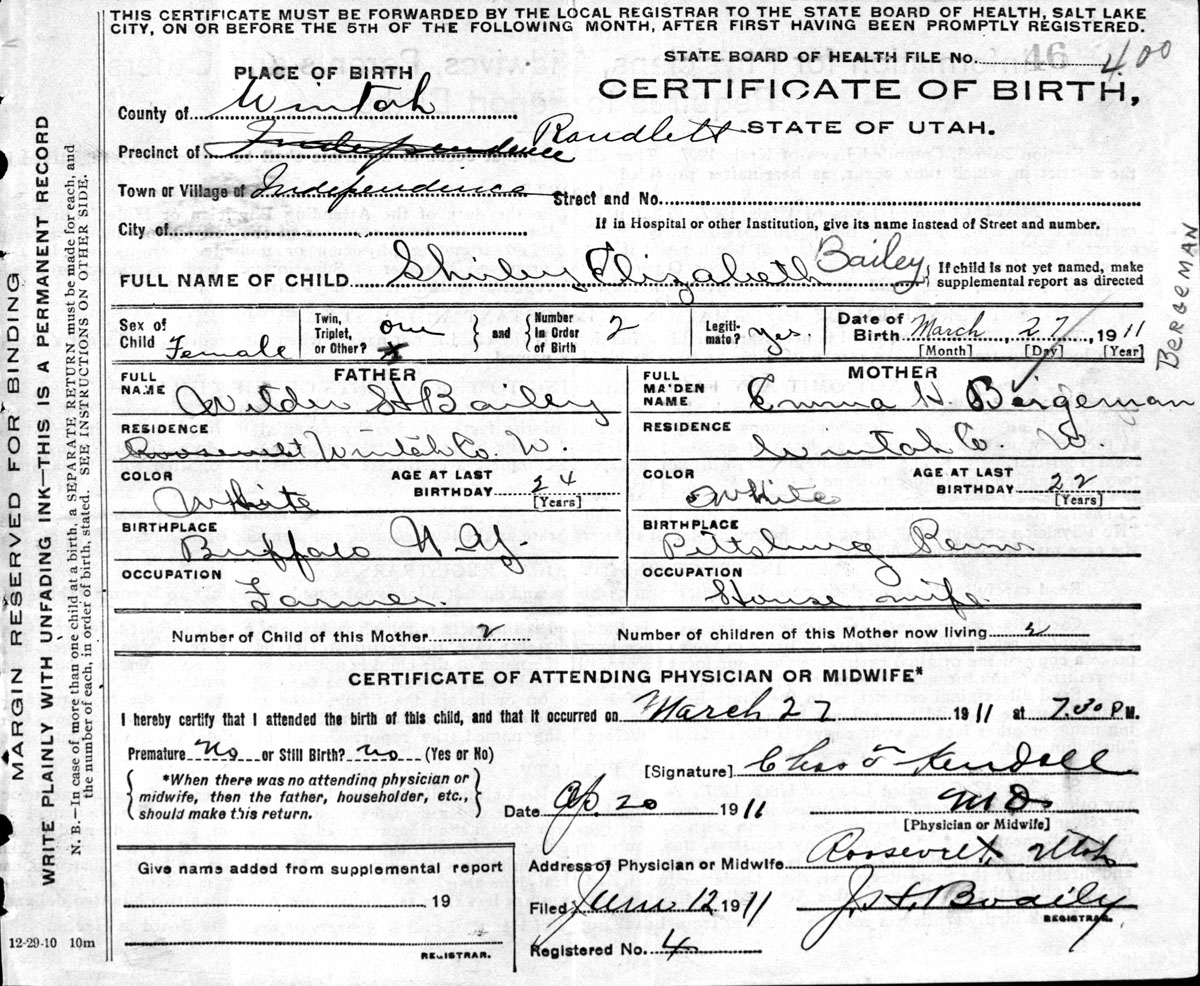 THIS CERTIFICATE MUST BE FORWARDED BY THE LOCAL REGISTRAR TO THE STATE BOARD OF HEALTH, SALT LAKE
CITY, ON OR BEFORE THE 5TH OF THE FOLLOWING MONTH, AFTER FIRST HAVING BEEN PROMPTLY REGISTERED.
STATE BOARD OF HEALTH FILE No. 46 400
PLACE OF BIRTH
CERTIFICATE OF BIRTH,
County of Wintah
STATE OF UTAH.
Precinct of Independence Randlett
Town or Village of Independence Street and No.
City of If in Hospital or other Institution, give its name instead of Street and number.
FULL NAME OF CHILD Shirley Elizabeth Bailey { If child is not yet named, make
supplemental report as directed
Sex of Child Female Twin, Triplet, or Other? one } and { Number in Order of Birth 2 Legitimate? yes. Date of Birth March, 27, 1911
[Month] [Day] [Year]
FATHER MOTHER
FULL NAME Wilder H Bailey FULL MAIDEN NAME Emma H. Bergeman
BERGEMAN
RESIDENCE Roosevelt Wintah Co. U. RESIDENCE Wintah Co. U
COLOR White AGE AT LAST BIRTHDAY 24 [Years] COLOR White AGE AT LAST BIRTHDAY 22 [Years]
BIRTHPLACE Buffalo N.Y. BIRTHPLACE Pittsburg Penn
OCCUPATION Farmer. OCCUPATION House wife
Number of Child of this Mother 2 Number of children of this Mother now living 2
CERTIFICATE OF ATTENDING PHYSICIAN OR MIDWIFE*
I hereby certify that I attended the birth of this child, and that it occurred on March 27 1911 at 7.30 P.M.
Premature No or Still Birth? no (Yes or No)
[Signature] Chas Kendall
{ *When there was no attending physician or
midwife, then the father, householder, etc.,
should make this return. }
Date Ap 20 1911 M D
[Physician or Midwife]
Address of Physician or Midwife Roosevelt, Utah
Give name added from supplemental report
19
REGISTRAR.
Filed June 12 1911
REGISTRAR.
Registered No. 4
12-29-10 10m
MARGIN RESERVED FOR BINDING
WRITE PLAINLY WITH UNFADING INK—THIS IS A PERMANENT RECORD
N. B.—In case of more than one child at a birth, a SEPARATE RETURN must be made for each, and
the number of each, in order of birth, stated. SEE INSTRUCTIONS ON OTHER SIDE.